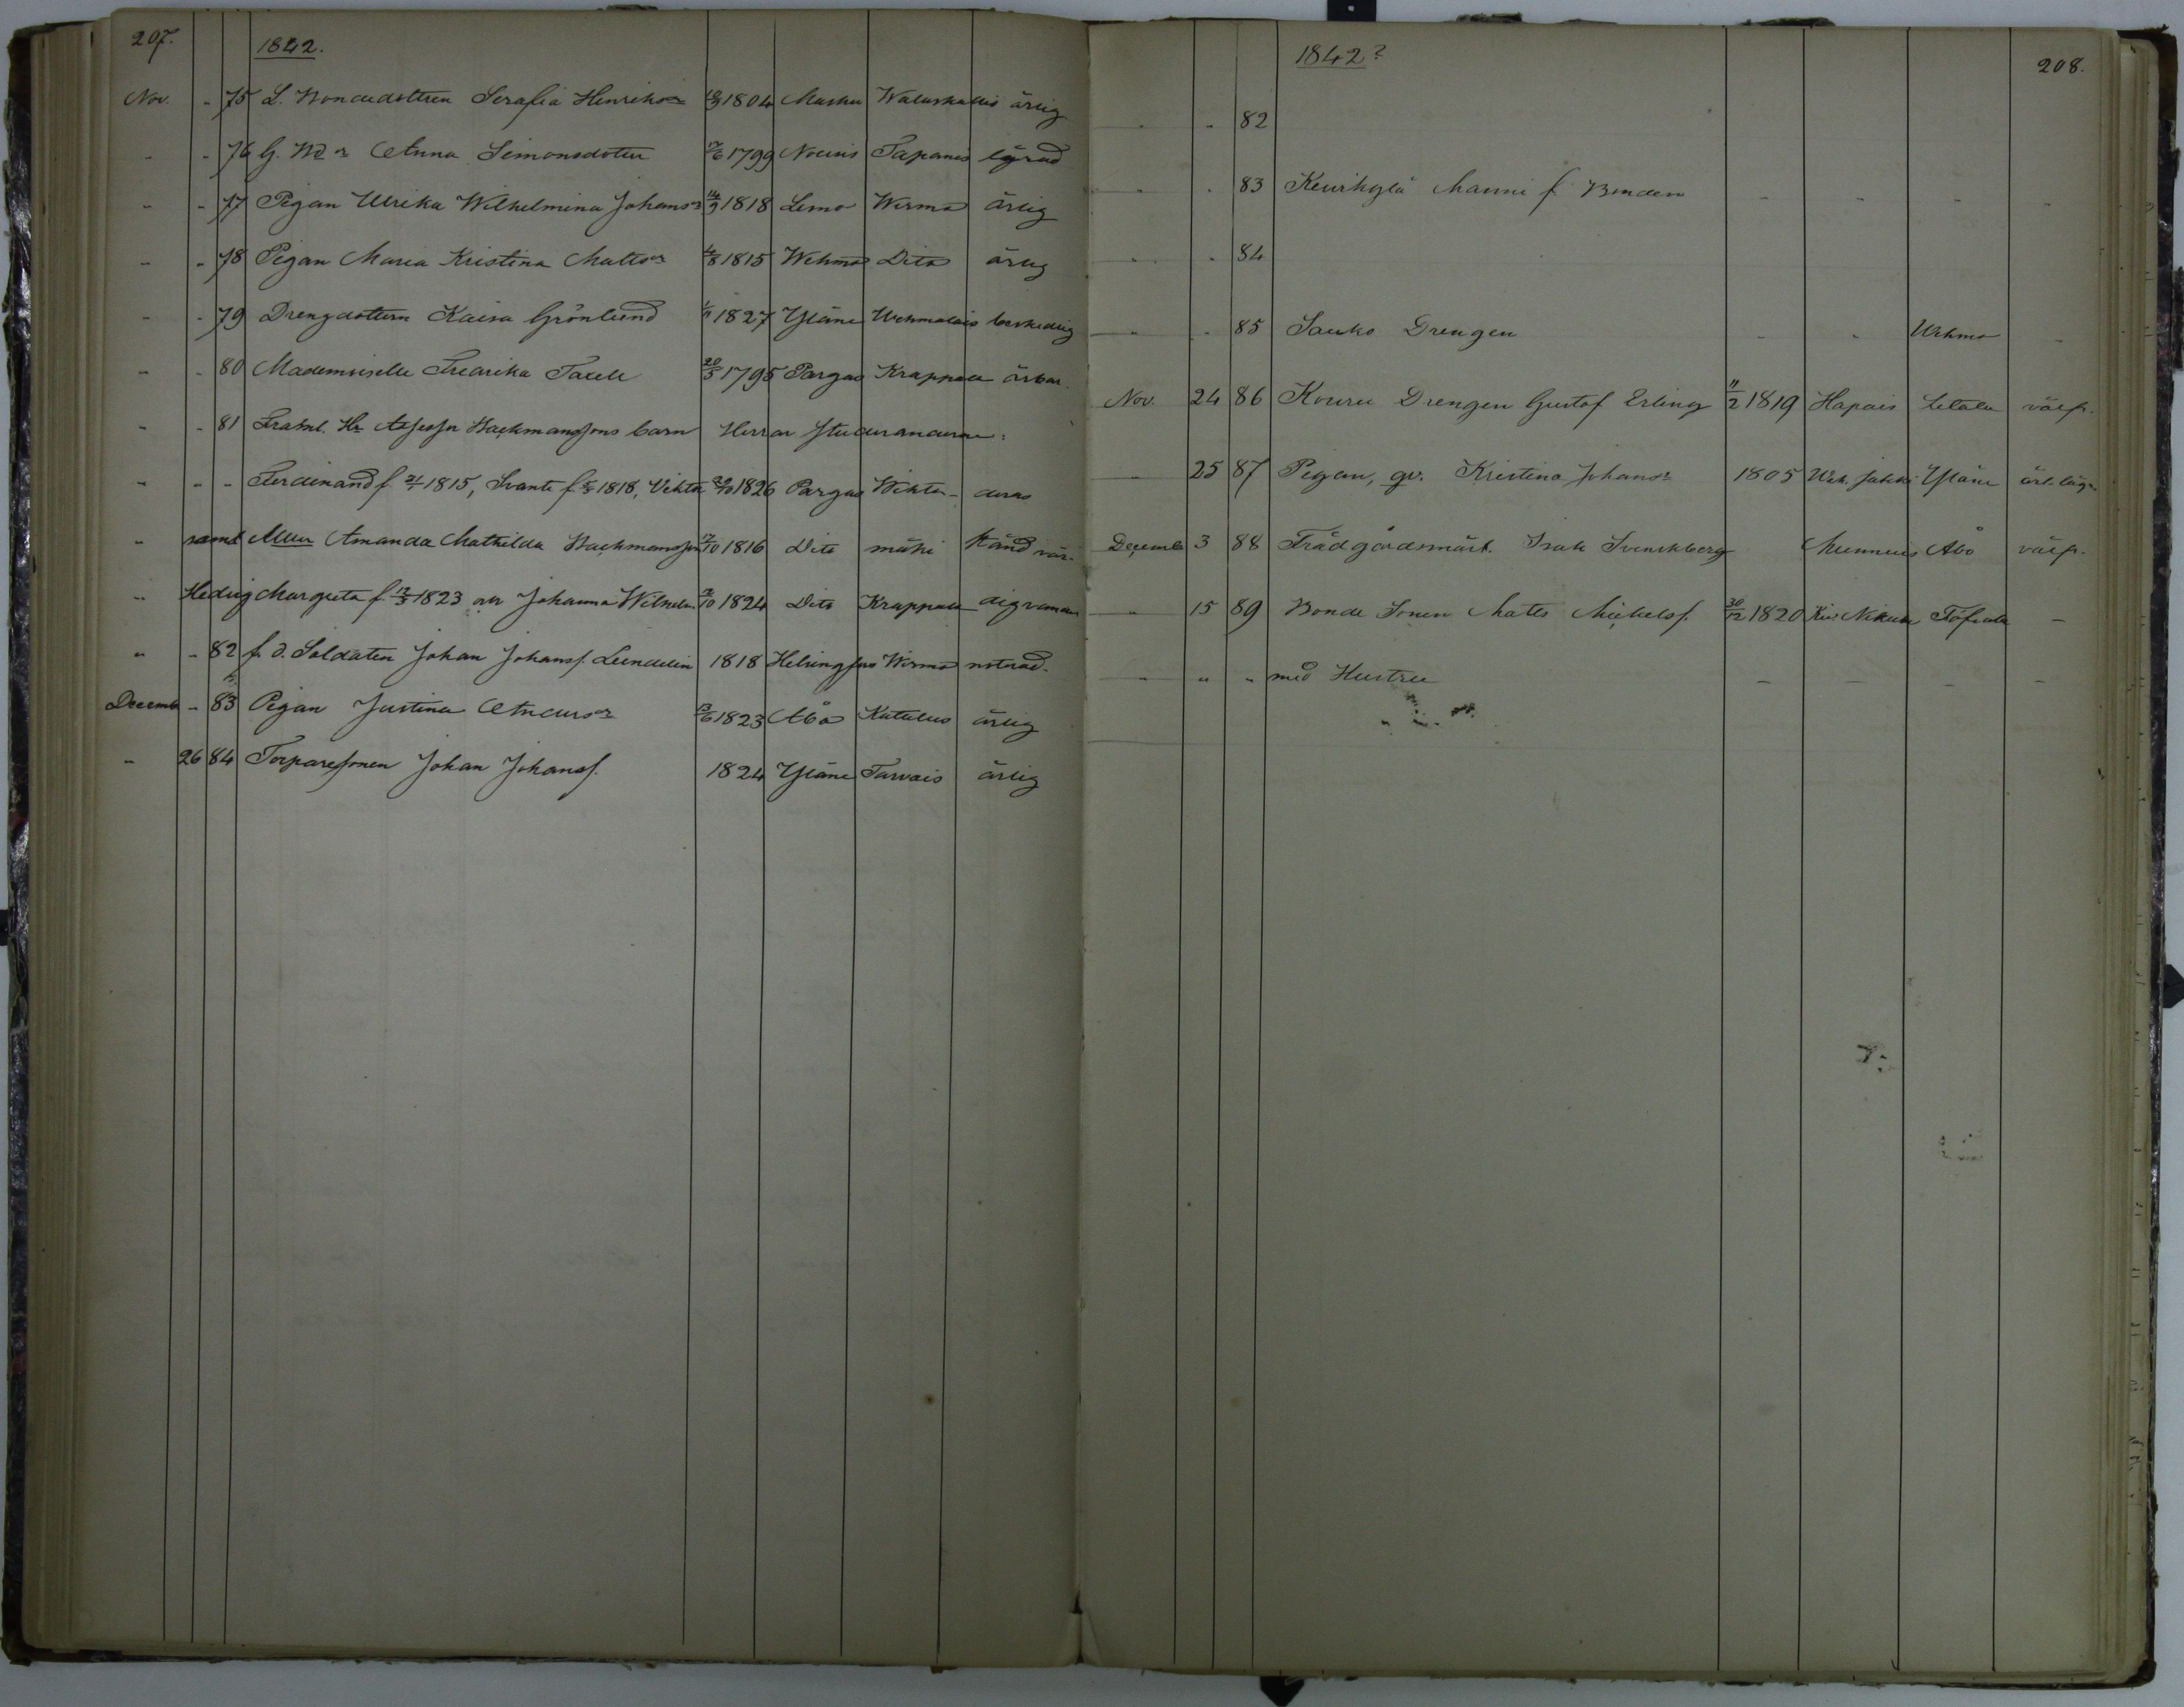 207.
1842.
Nov. - 75 L. Bondedottren Serafia Henriksr 1804 Masku Waluskallis ärlig
- - 76 G. Anna Simonsdotter 17/6 1799 Nousis Tapanis lägrad
- - 77 Pigan Ulrika Wilhelmina Johansr 14/9 1818 Lemo Wirmo ärlig
- - 78 Pigan Maria Kristina Mattsr 4/8 1815 Wehmo Dito ärlig
- - 79 Drengdottern Kaisa Grönlund 1827 Yläne Wehmalais beskedlig
- - 80 Mademoiselle Fredrika Taxell 20/5 1795 Pargas Krappala ärbar.
- - 81 Framl. Hr Assessor Backmanssons barn Herrar studerandena:
- - - Ferdinand f. 1815, Svante f. 1818, Viktor 1826 Pargas Wiktor- deras
- samt Mllr Amanda Mathilda Backmansson 1816 Dito mäki stånd vär-
- Hedvig Margreta f. 13/3 1823 Johanna Wilhelm. 2/10 1824 Dito Krappala digvandr
" - 82 f. d. Soldaten Johan Johanss. Lundelin 1818 Helsingfors Wirmo
Decemb - 83 Pigan Justina Andersr 1823 Åbo Katalus ärlig
" 26 84 Torparesonen Johan Johanss. 1824 Yläne Tarvais ärlig
1842?
208.
- - 82
- - 83 Keurikylä Manni f Bonden - - - -
- - 84
- - 85 Sauko Drengen - - Wehmo -
Nov. 24 86 Kouru Drengen Gustof Erling 11/2 1819 Hapais Letala välfr.
- 25 87 Pigan, qv. Kristina Johansr 1805 Yläne ärl. lägr.
Decemb 3 88 Trädgårdsmäst. Isak Svenskberg Munnuis Åbo välfr.
- 15 89 Bonde Sonen Matts Mickelss. 30/12 1820 Töfsala -
- " " med Hustru - - - -